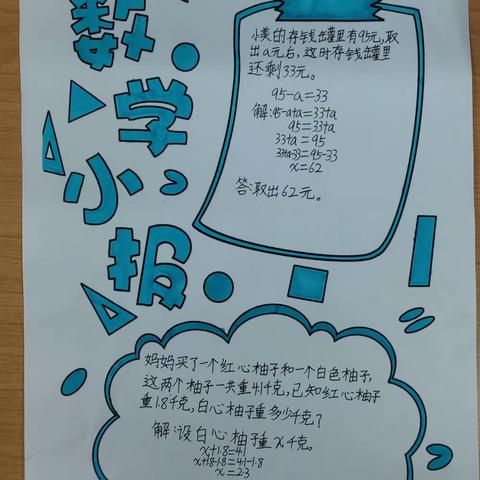 数学小报
小美的存钱罐里有95元,取
出a元后,这时存钱罐里
还剩33元。
95-a=33
解:95-a+a=33+a
95=33+a
33+a=95
33+a-33=95-33
x=62
答:取出62元。
妈妈买了一个红心柚子和一个白色柚子,
这两个柚子一共重4.1千克,已知红心柚子
重1.8千克,白心柚子重多少千克?
解:设白心柚子重x千克。
x+1.8=4.1
x+1.8-1.8=4.1-1.8
x=2.3